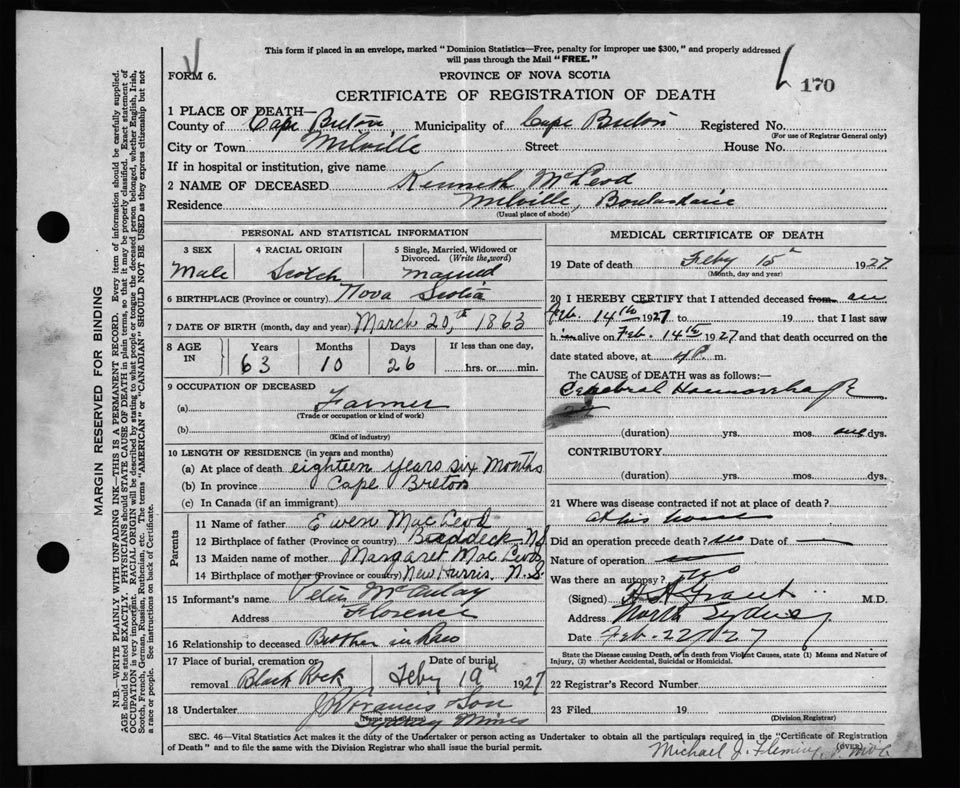 This form if placed in an envelope, marked "Dominion Statistics—Free, penalty for improper use $300," and properly addressed
will pass through the Mail "FREE."
FORM 6.
PROVINCE OF NOVA SCOTIA
170
CERTIFICATE OF REGISTRATION OF DEATH
1 PLACE OF DEATH—
County of Cape Breton Municipality of Cape Breton Registered No.
(For use of Registrar General only)
City or Town Milville Street House No.
If in hospital or institution, give name
2 NAME OF DECEASED Kenneth McLeod
Residence Milville, Boulardarie
(Usual place of abode)
PERSONAL AND STATISTICAL INFORMATION
3 SEX 4 RACIAL ORIGIN 5 Single, Married, Widowed or
Divorced. (Write the word)
Male Scotch married
6 BIRTHPLACE (Province or country) Nova Scotia
7 DATE OF BIRTH (month, day and year) March 20,th 1863
8 AGE IN Years Months Days If less than one day,
63 10 26 hrs. or min.
9 OCCUPATION OF DECEASED
(a) Farmer
(Trade or occupation or kind of work)
(b)
(Kind of industry)
10 LENGTH OF RESIDENCE (in years and months)
(a) At place of death eighteen years six months
(b) In province Cape Breton
(c) In Canada (if an immigrant)
Parents
11 Name of father Ewen MacLeod
12 Birthplace of father (Province or country) Baddeck N.S
13 Maiden name of mother Margaret MacLeod
14 Birthplace of mother (Province or country) New Harris. N.S.
15 Informant's name Peter McAulay
Address Florence
16 Relationship to deceased Brother in Law
17 Place of burial, cremation or Date of burial
removal Black Rock Feby 19th 1927
18 Undertaker Francis & Son
(Name and address)
Sydney Mines
MEDICAL CERTIFICATE OF DEATH
19 Date of death Feby 15th 1927
(Month, day and year)
20 I HEREBY CERTIFY that I attended deceased from on
Feb. 14th 1927 to 19 that I last saw
him alive on Feb. 14th 1927 and that death occurred on the
date stated above, at 4 P. m.
The CAUSE OF DEATH was as follows:—
Cerebral Haemorrhage
(duration) yrs. mos. one dys.
CONTRIBUTORY
(duration) yrs. mos. dys.
21 Where was disease contracted if not at place of death?
at his house
Did an operation precede death? no Date of —
Nature of operation
Was there an autopsy? no
(Signed) Grant M.D.
Address North Sydney
Date Feb. 22/27
State the Disease causing Death, or in death from Violent Causes, state (1) Means and Nature of
Injury, (2) whether Accidental, Suicidal or Homicidal.
22 Registrar's Record Number
23 Filed 19
(Division Registrar)
SEC. 46—Vital Statistics Act makes it the duty of the Undertaker or person acting as Undertaker to obtain all the particulars required in the "Certificate of Registration
of Death" and to file the same with the Division Registrar who shall issue the burial permit.
(OVER)
Michael J. Fleming
MARGIN RESERVED FOR BINDING
N.B.—WRITE PLAINLY WITH UNFADING INK—THIS IS A PERMANENT RECORD. Every item of information should be carefully supplied.
AGE should be stated EXACTLY. PHYSICIANS should STATE CAUSE OF DEATH in plain terms, so that it may be properly classified. Exact statement of
OCCUPATION is very important. RACIAL ORIGIN will be described by stating to what people or tongue the deceased person belonged, whether English, Irish,
Scotch, French, German, Russian, Ruthenian, etc. The terms "AMERICAN" or "CANADIAN" SHOULD NOT BE USED as they express citizenship but not
a race or people. See instructions on back of Certificate.